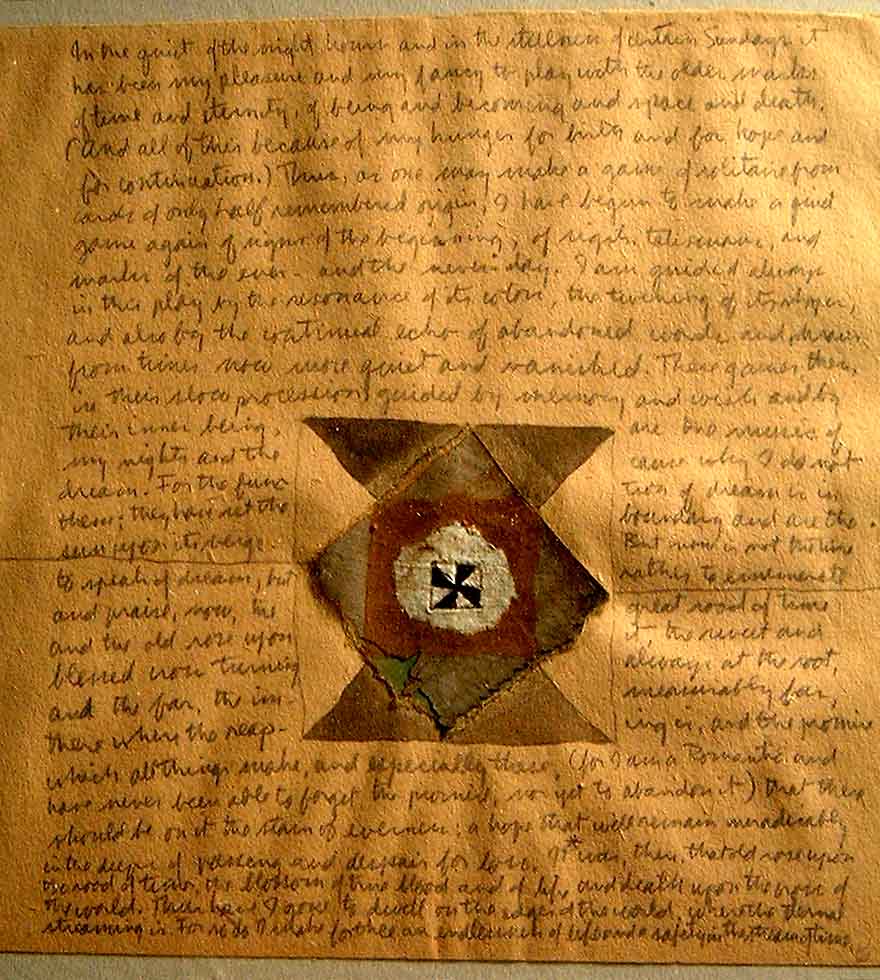 In the quiet of the night hours and in the stillness of certain Sundays it
has been my pleasure and my fancy to play with the older marks
of time and eternity, of being and becoming and space and death.
(And all of this because of my hunger for birth and for hope and
for continuation.) Thus, as one may make a game of solitaire from
cards of only half remembered origin, I have begun to make a
game again of signs of the beginning, of sigils, talismans, and
marks of the ever- and the never-day. I am guided always
in this play by the resonance of its colors, the touching of its shapes,
and also by the continued echo of abandoned words and
from times now more quiet and vanished. These games then,
in their slow procession guided by memory and wish and by
their inner being, are the music of
my nights and the cause why I do not
dream. For the func- tion of dream is in
them; they have set the boundary and are the
sun upon its verge. But now is not the time
to speak of dream, but rather to enumerate
and praise, now, the great rood of time
and the old rose upon it, the sweet and
blessed rose turning always at the root,
and the far, the im- measurably far,
there where the reap- ing is, and the promise
which all things make, and especially these, (for I am a Romantic and
have never been able to forget the promise, nor yet to abandon it) that there
should be on it the stain of everness: a hope that will remain ineradicably
in the deeps of passing and despair for love. It was, then, that old rose upon
the rood of time, the blossom of true blood and of life and death upon the rose of
the world. Then have I gone to dwell on the edges of the world, where the eternal
streaming is. For so do I make for once an endlessness of life and a safety in the stream of time.